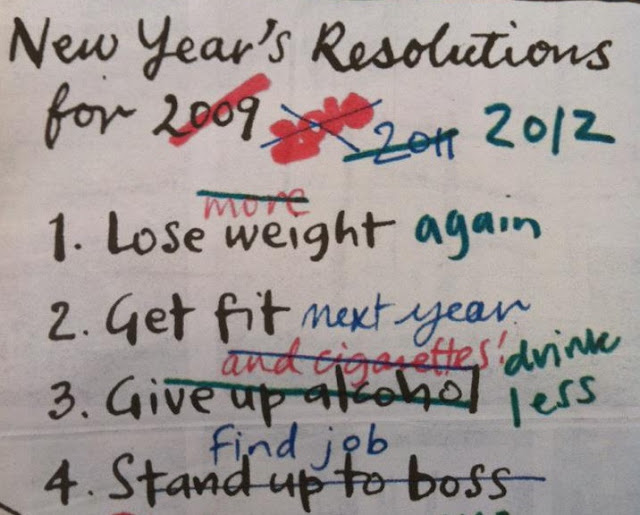 New Year's Resolutions
for 2009 2010 2011 2012
more
1. Lose weight again
2. Get fit next year
and cigarettes! drink
3. Give up alcohol less
find job
4. Stand up to boss